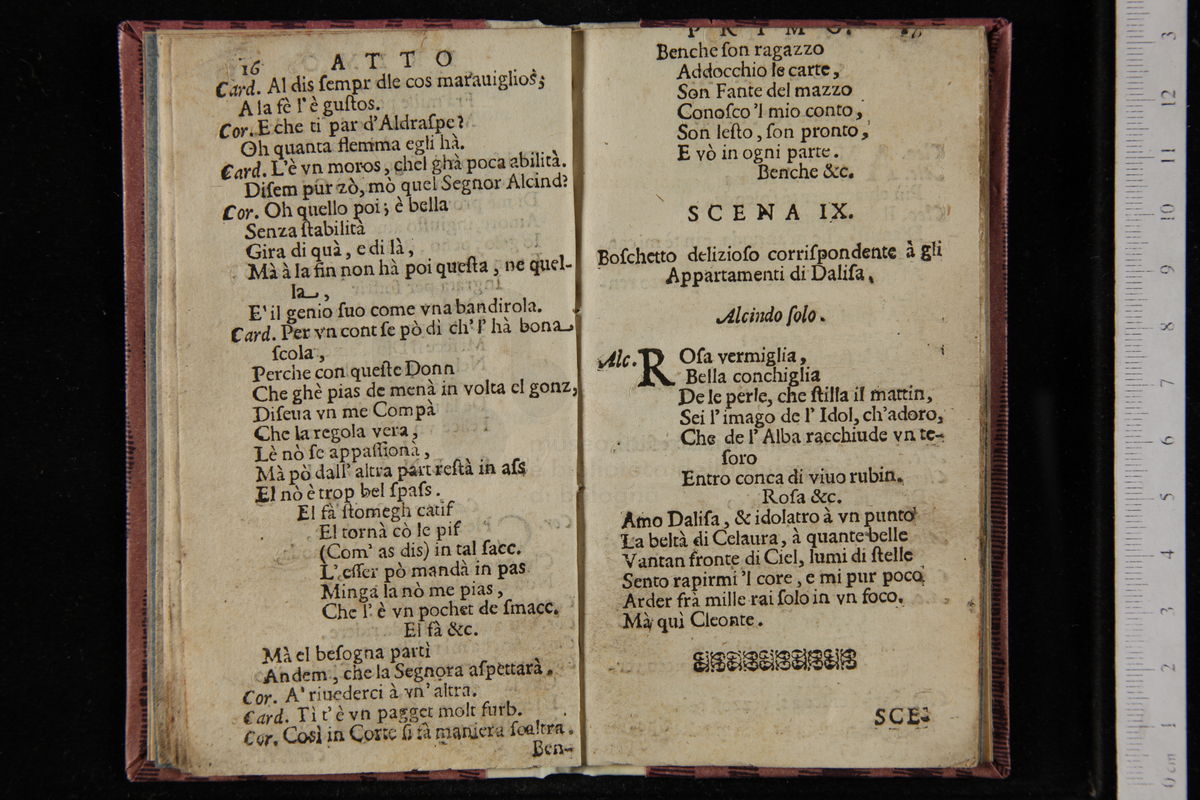 16 ATTO
Card. Al dis ſempr dle cos marauiglioſ;
A la fè l'è guſtos.
Cor. E che ti par d'Aldraſpe?
Oh quanta flemma egli hà.
Card. L'è vn moros, chel ghà poca abilità.
Diſem pur zò, mò quel Segnor Alcind?
Cor. Oh quello poi; è bella
Senza ſtabilità
Gira di quà, e di là,
Mà à la fin non hà poi queſta, ne quel-
la,
E' il genio ſuo come vna bandirola.
Card. Per vn cont ſe pò dì ch'l' hà bona
ſcola,
Perche con queſte Donn
Che ghè pias de menà in volta el gonz,
Diſeua vn me Compà
Che la regola vera,
Lè nò ſe appaſſionà,
Mà pò dall' altra part reſtà in aſs
El nò è trop bel ſpaſs.
El fà ſtomegh catif
El tornà cò le pif
(Com' as dis) in tal ſacc.
L' eſſer pò mandà in pas
Minga la nò me pias,
Che l' è vn pochet de ſmacc.
El fà &c.
Mà el beſogna partì
Andem, che la Segnora aſpettarà.
Cor. A' riuederci à vn' altra.
Card. Tì t'è vn pagget molt furb.
Cor. Così in Corte ſi fà maniera ſcaltra.
Ben-
PRIMO.
Benche ſon ragazzo
Addocchio le carte,
Son Fante del mazzo
Conoſco 'l mio conto,
Son leſto, ſon pronto,
E vò in ogni parte.
Benche &c.
SCENA IX.
Boſchetto delizioſo corriſpondente à gli
Appartamenti di Daliſa.
Alcindo ſolo.
Alc. ROſa vermiglia,
Bella conchiglia
De le perle, che ſtilla il mattin,
Sei l' imago de l' Idol, ch'adoro,
Che de l' Alba racchiude vn te-
ſoro
Entro conca di viuo rubin.
Roſa &c.
Amo Daliſa, & idolatro à vn punto
La beltà di Celaura, à quante belle
Vantan fronte di Ciel, lumi di ſtelle
Sento rapirmi 'l core, e mi pur poco
Arder frà mille rai ſolo in vn foco.
Mà quì Cleonte.
SCE-